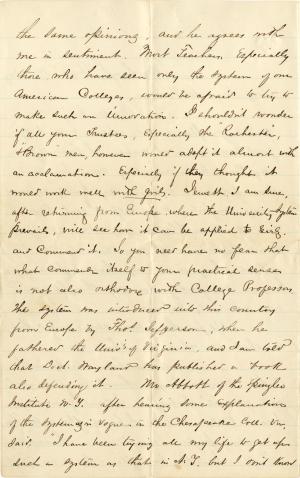 the same opinions, and he agrees with
me in sentiment. Most Teachers, Especially
those who have seen only the system of our
American Colleges, would be afraid to try to
make such an innovation. I shouldn't wonder
if all your Trustees, Especially the Rochester,
& Brown men, however would adopt it almost with
an acclamation. Especially if they thought it
would work well with girls. Jewett I am sure,
after returning from Europe, where the University System
prevails, will see how it can be applied to Girls,
and Commend it. So you need have no fear that
what commends itself to your practical senses
is not also orthodox with College Professors.
The system was introduced into this country
from Europe by Thos. Jefferson, when he
fathered the Univ'y of Virginia, and I am told
that Doct. Wayland has published a book
also defending it. Mr Abbott of the Spingler
Institute N.Y. after hearing some Explanations
of the System in vogue in the Chesapeake Coll. Va,
said. "I have been trying all my life to get up
such a system as that in N.Y. but I don't know